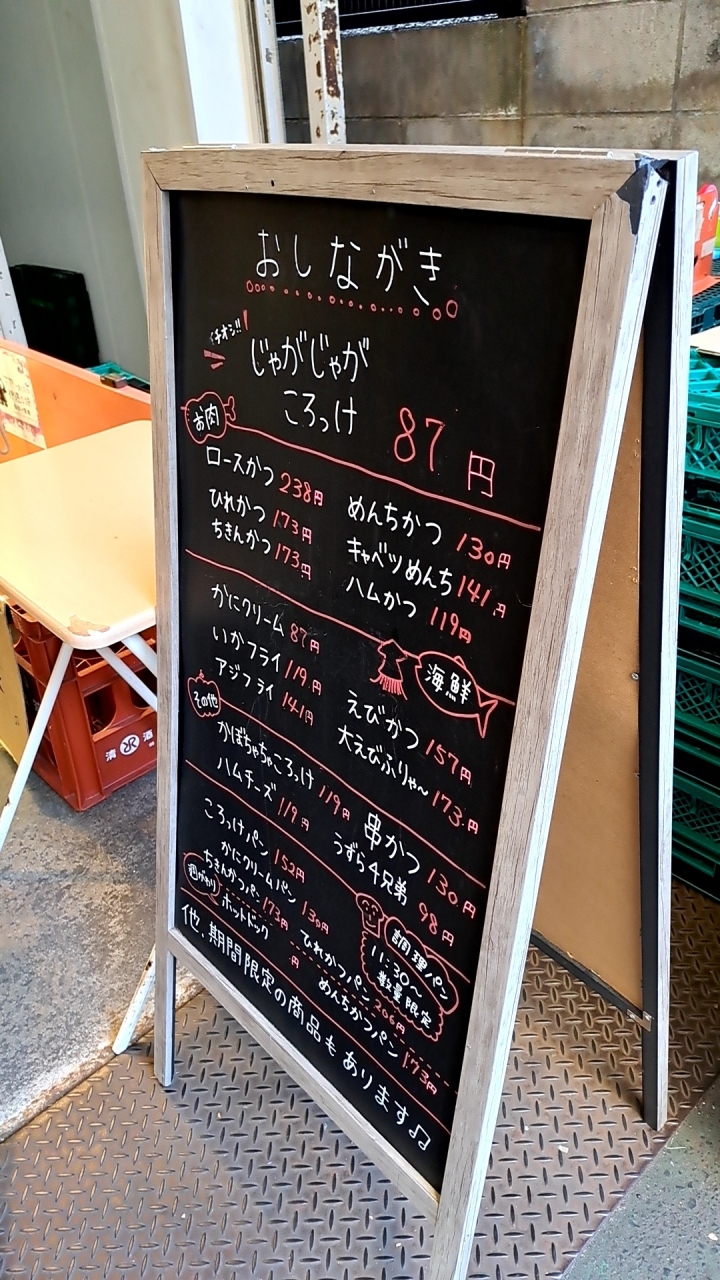 おしながき
イチオシ!!
じゃがじゃが
ころっけ 87円
お肉
ロースかつ 238円
ひれかつ 173円
ちきんかつ 173円
めんちかつ 130円
キャベツめんち 141円
ハムかつ 119円
海鮮
かにクリーム 87円
いかフライ 119円
アジフライ 141円
えびかつ 157円
大えびふりゃ〜 173円
その他
かぼちゃちゃころっけ 119円
ハムチーズ 119円
串かつ 130円
うずら4兄弟 98円
調理パン
11:30〜
数量限定
ころっけパン 152円
かにクリームパン 130円
ちきんかつパン 173円
ひれかつパン 206円
めんちかつパン 173円
週がわり
ホットドック 円
他、期間限定の商品もあります♫
清酒